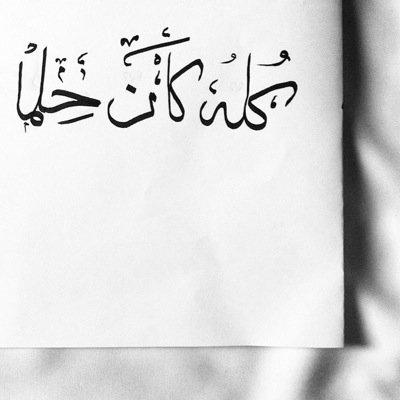 كُلهُ كان حلما